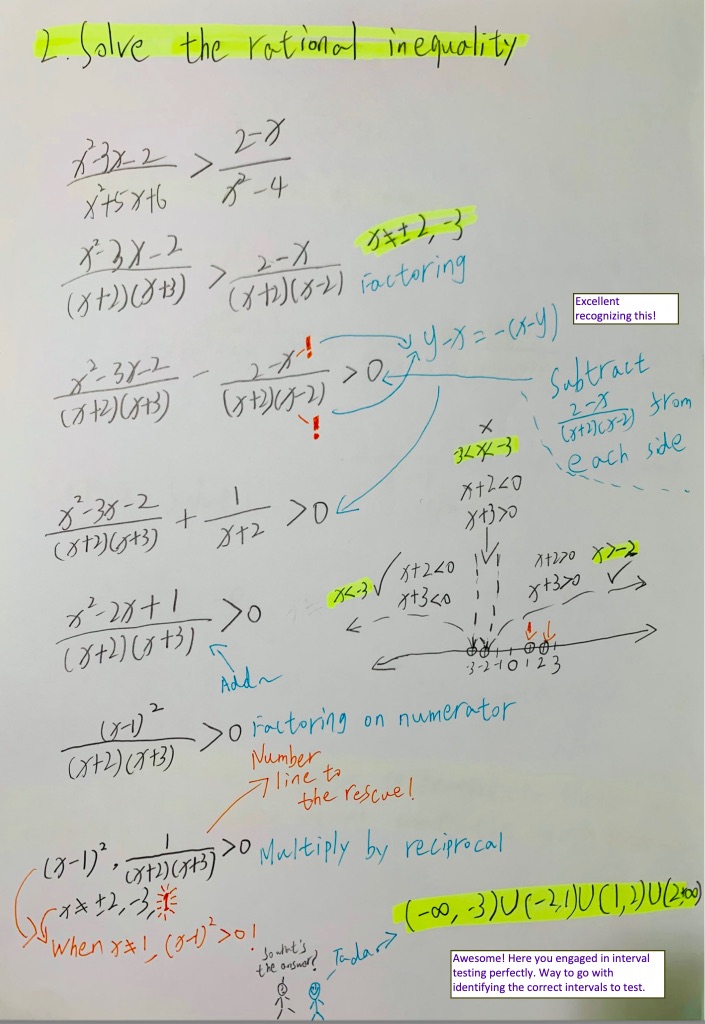 2. Solve the rational inequality
x²-3x-2 / x²+5x+6 > 2-x / x²-4
x²-3x-2 / (x+2)(x+3) > 2-x / (x+2)(x-2)
x≠±2,-3
Factoring
Excellent
recognizing this!
x²-3x-2 / (x+2)(x+3) - 2-x / (x+2)(x-2) > 0
!
!
y-x=-(x-y)
Subtract
2-x / (x+2)(x-2) from
each side
x²-3x-2 / (x+2)(x+3) + 1 / x+2 > 0
x
3<x<-3
x+2<0
x+3>0
x<-3 √
x+2<0
x+3<0
x+2>0
x+3>0
x>-2
√
-3 -2 -1 0 1 2 3
x²-2x+1 / (x+2)(x+3) > 0
Add~
(x-1)² / (x+2)(x+3) > 0 Factoring on numerator
Number
line to
the rescue!
(x-1)² · 1 / (x+2)(x+3) > 0 Multiply by reciprocal
x≠±2,-3, 1
When x≠1, (x-1)²>0!
(-∞, -3)∪(-2,1)∪(1,2)∪(2,+∞)
So what's
the answer?
Tada
Awesome! Here you engaged in interval
testing perfectly. Way to go with
identifying the correct intervals to test.